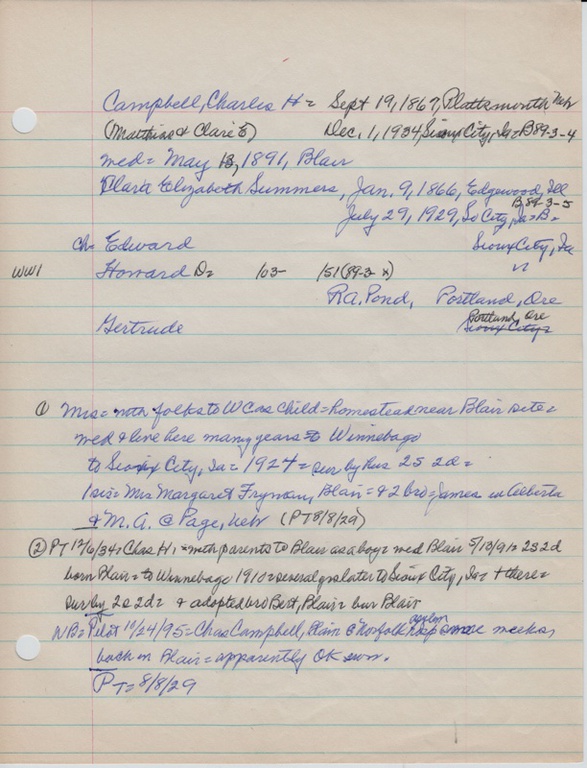 Campbell, Charles H = Sept 19, 1867, Plattsmouth Neb
(Matthias & Clare E) Dec. 1, 1934, Sioux City, Ia = B89-3-4
med = May 13, 1891, Blair
Clara Elizabeth Summers, Jan. 9, 1866, Edgewood, Ill
B89-3-5
July 29, 1929, So City, Ia = B =
ch = Edward Sioux City, Ia
WW1 Howard D = 103- 151 (89-3-x) "
R.A. Pond, Portland, Ore
Gertrude Portland, Ore
Sioux City =
① Mrs = with folks to WC as child = homestead near Blair site =
med & live here many years = to Winnebago
to Sioux City, Ia = 1924 = sur by hus 2S 2d =
1 sis = Mrs Margaret Fryman, Blair = & 2 bro = James in Alberta
& M. A. @ Page, Neb (PT 8/8/29)
② PT 12/6/34 = Chas H, = with parents to Blair as a boy = med Blair 5/13/91 = 2S 2d
born Blair = to Winnebago 1910 = several yrs later to Sioux City, Ia = & there =
sur by 2s 2d = & adopted bro Bert, Blair = bur Blair
NB = Pilot 10/24/95 = Chas Campbell, Blair @ Norfolk hosp some weeks,
asylum
back in Blair = apparently OK
PT = 8/8/29